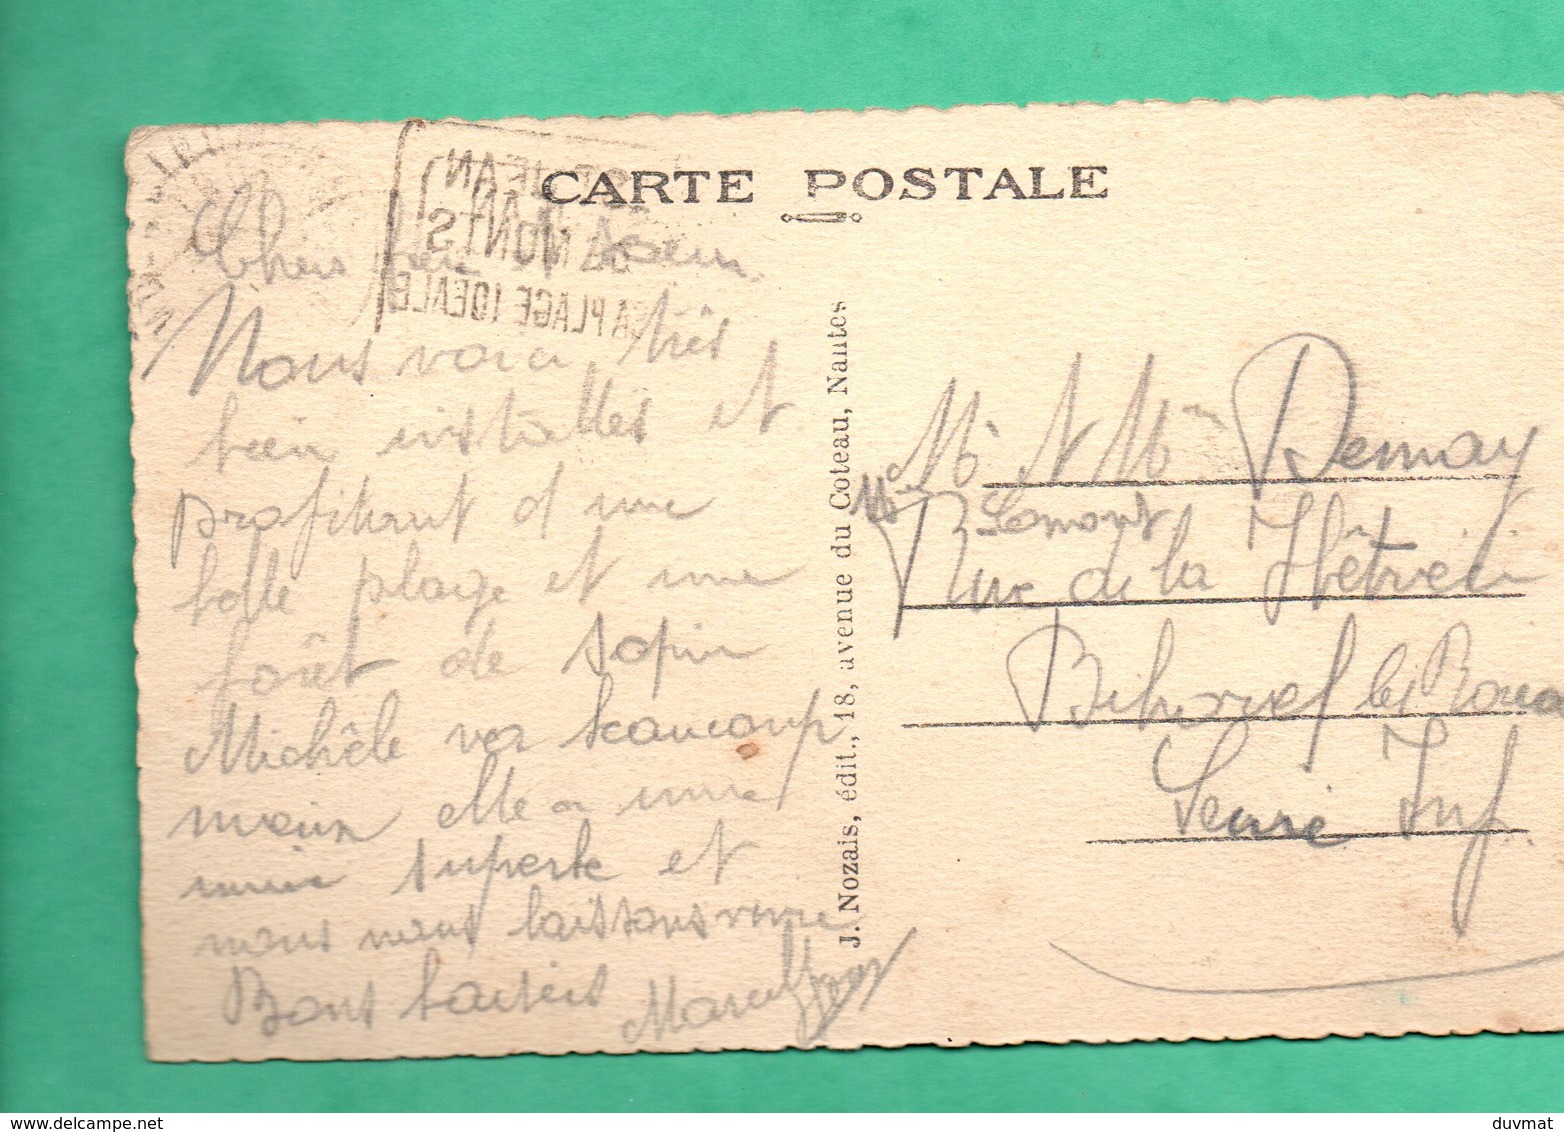 CARTE POSTALE
ST JEAN
DE MONTS
SA PLAGE IDEALE
Chers et Soeur
Nous voici très
bien installés et
profitant d'une
belle plage et une
forêt de sapin
Michèle va beaucoup
mieux elle a une
mine superbe et
nous nous laissons vivre
Bons baisers Marcel
J. Nozais, édit., 18, avenue du Coteau, Nantes
Mr et Mme Demay
Rue de la Hêtraie
Bihorel les Rouen
Seine Inf.
www.delcampe.net
duvmat